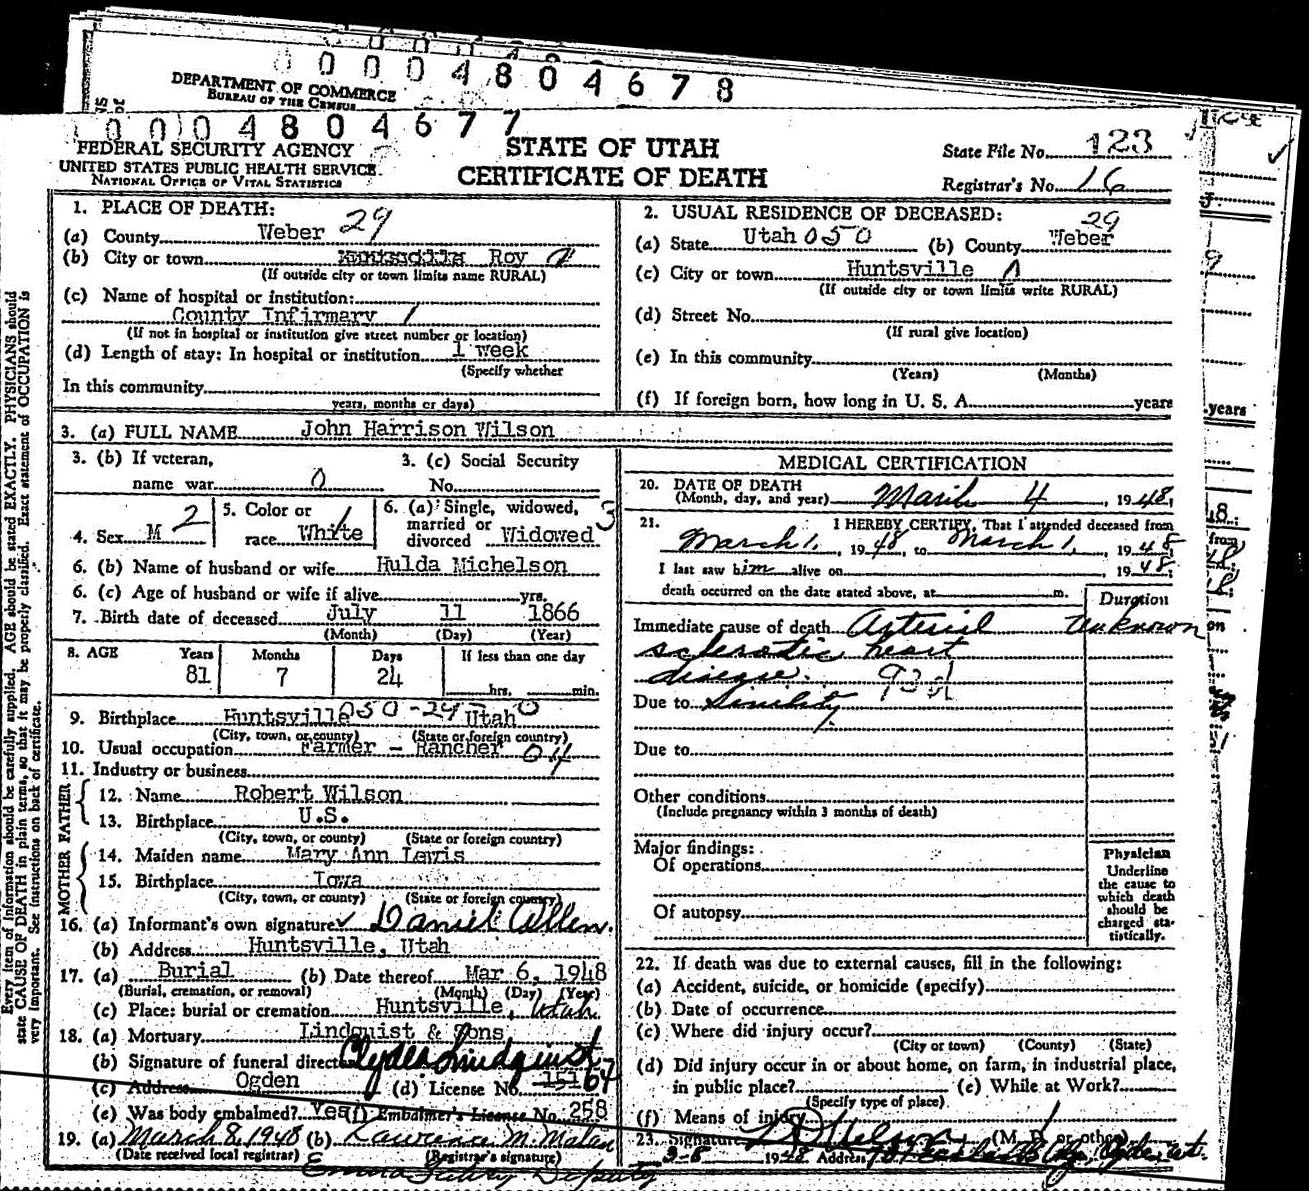 0 0 0 4 8 0 4 6 7 8
DEPARTMENT OF COMMERCE
BUREAU OF THE CENSUS
0 0 0 4 8 0 4 6 7 7
FEDERAL SECURITY AGENCY
UNITED STATES PUBLIC HEALTH SERVICE
NATIONAL OFFICE OF VITAL STATISTICS
STATE OF UTAH
CERTIFICATE OF DEATH
State File No. 123
Registrar's No. 16
1. PLACE OF DEATH:
(a) County Weber 29
(b) City or town Huntsville Roy
(If outside city or town limits name RURAL)
(c) Name of hospital or institution:
County Infirmary 1
(If not in hospital or institution give street number or location)
(d) Length of stay: In hospital or institution 1 week
(Specify whether
In this community
years, months or days)
2. USUAL RESIDENCE OF DECEASED:
(a) State Utah 050 (b) County Weber 29
(c) City or town Huntsville
(If outside city or town limits write RURAL)
(d) Street No.
(If rural give location)
(e) In this community
(Years) (Months)
(f) If foreign born, how long in U. S. A. years
3. (a) FULL NAME John Harrison Wilson
3. (b) If veteran, name war 0
3. (c) Social Security No.
4. Sex M 2
5. Color or race White 1
6. (a) Single, widowed, married or divorced Widowed 3
6. (b) Name of husband or wife Hulda Michelson
6. (c) Age of husband or wife if alive yrs.
7. Birth date of deceased July 11 1866
(Month) (Day) (Year)
8. AGE Years Months Days If less than one day
81 7 24 hrs. min.
9. Birthplace Huntsville 050-29 Utah 0
(City, town, or county) (State or foreign country)
10. Usual occupation Farmer - Rancher 04
11. Industry or business
FATHER
12. Name Robert Wilson
13. Birthplace U.S.
(City, town, or county) (State or foreign country)
MOTHER
14. Maiden name Mary Ann Lewis
15. Birthplace Iowa
(City, town, or county) (State or foreign country)
16. (a) Informant's own signature Daniel Allen
(b) Address Huntsville, Utah
17. (a) Burial (b) Date thereof Mar 6, 1948
(Burial, cremation, or removal) (Month) (Day) (Year)
(c) Place: burial or cremation Huntsville, Utah
18. (a) Mortuary Lindquist & Sons
(b) Signature of funeral director Clyde Lindquist
(c) Address Ogden (d) License No. 151 67
(e) Was body embalmed? Yes (f) Embalmer's License No. 258
19. (a) March 8, 1948 (b) Lawrence M. Malan
(Date received local registrar) (Registrar's signature)
Deputy
MEDICAL CERTIFICATION
20. DATE OF DEATH
(Month, day, and year) March 4, 1948
21. I HEREBY CERTIFY, That I attended deceased from
March 1, 1948, to March 1, 1948
I last saw him alive on 1948
death occurred on the date stated above, at m.
Duration
Immediate cause of death Arterial Unknown
sclerotic heart
disease. 93d
Due to Sinility
Due to
Other conditions
(Include pregnancy within 3 months of death)
Major findings:
Of operations
Of autopsy
Physician
Underline
the cause to
which death
should be
charged sta-
tistically.
22. If death was due to external causes, fill in the following:
(a) Accident, suicide, or homicide (specify)
(b) Date of occurrence
(c) Where did injury occur?
(City or town) (County) (State)
(d) Did injury occur in or about home, on farm, in industrial place,
in public place? (e) While at Work?
(Specify type of place)
(f) Means of injury
23. Signature (M. D. or other)
3-8 1948 Address
Every item of information should be carefully supplied. AGE should be stated EXACTLY. PHYSICIANS should
state CAUSE OF DEATH in plain terms, so that it may be properly classified. Exact statement of OCCUPATION is
very important. See instructions on back of certificate.
years